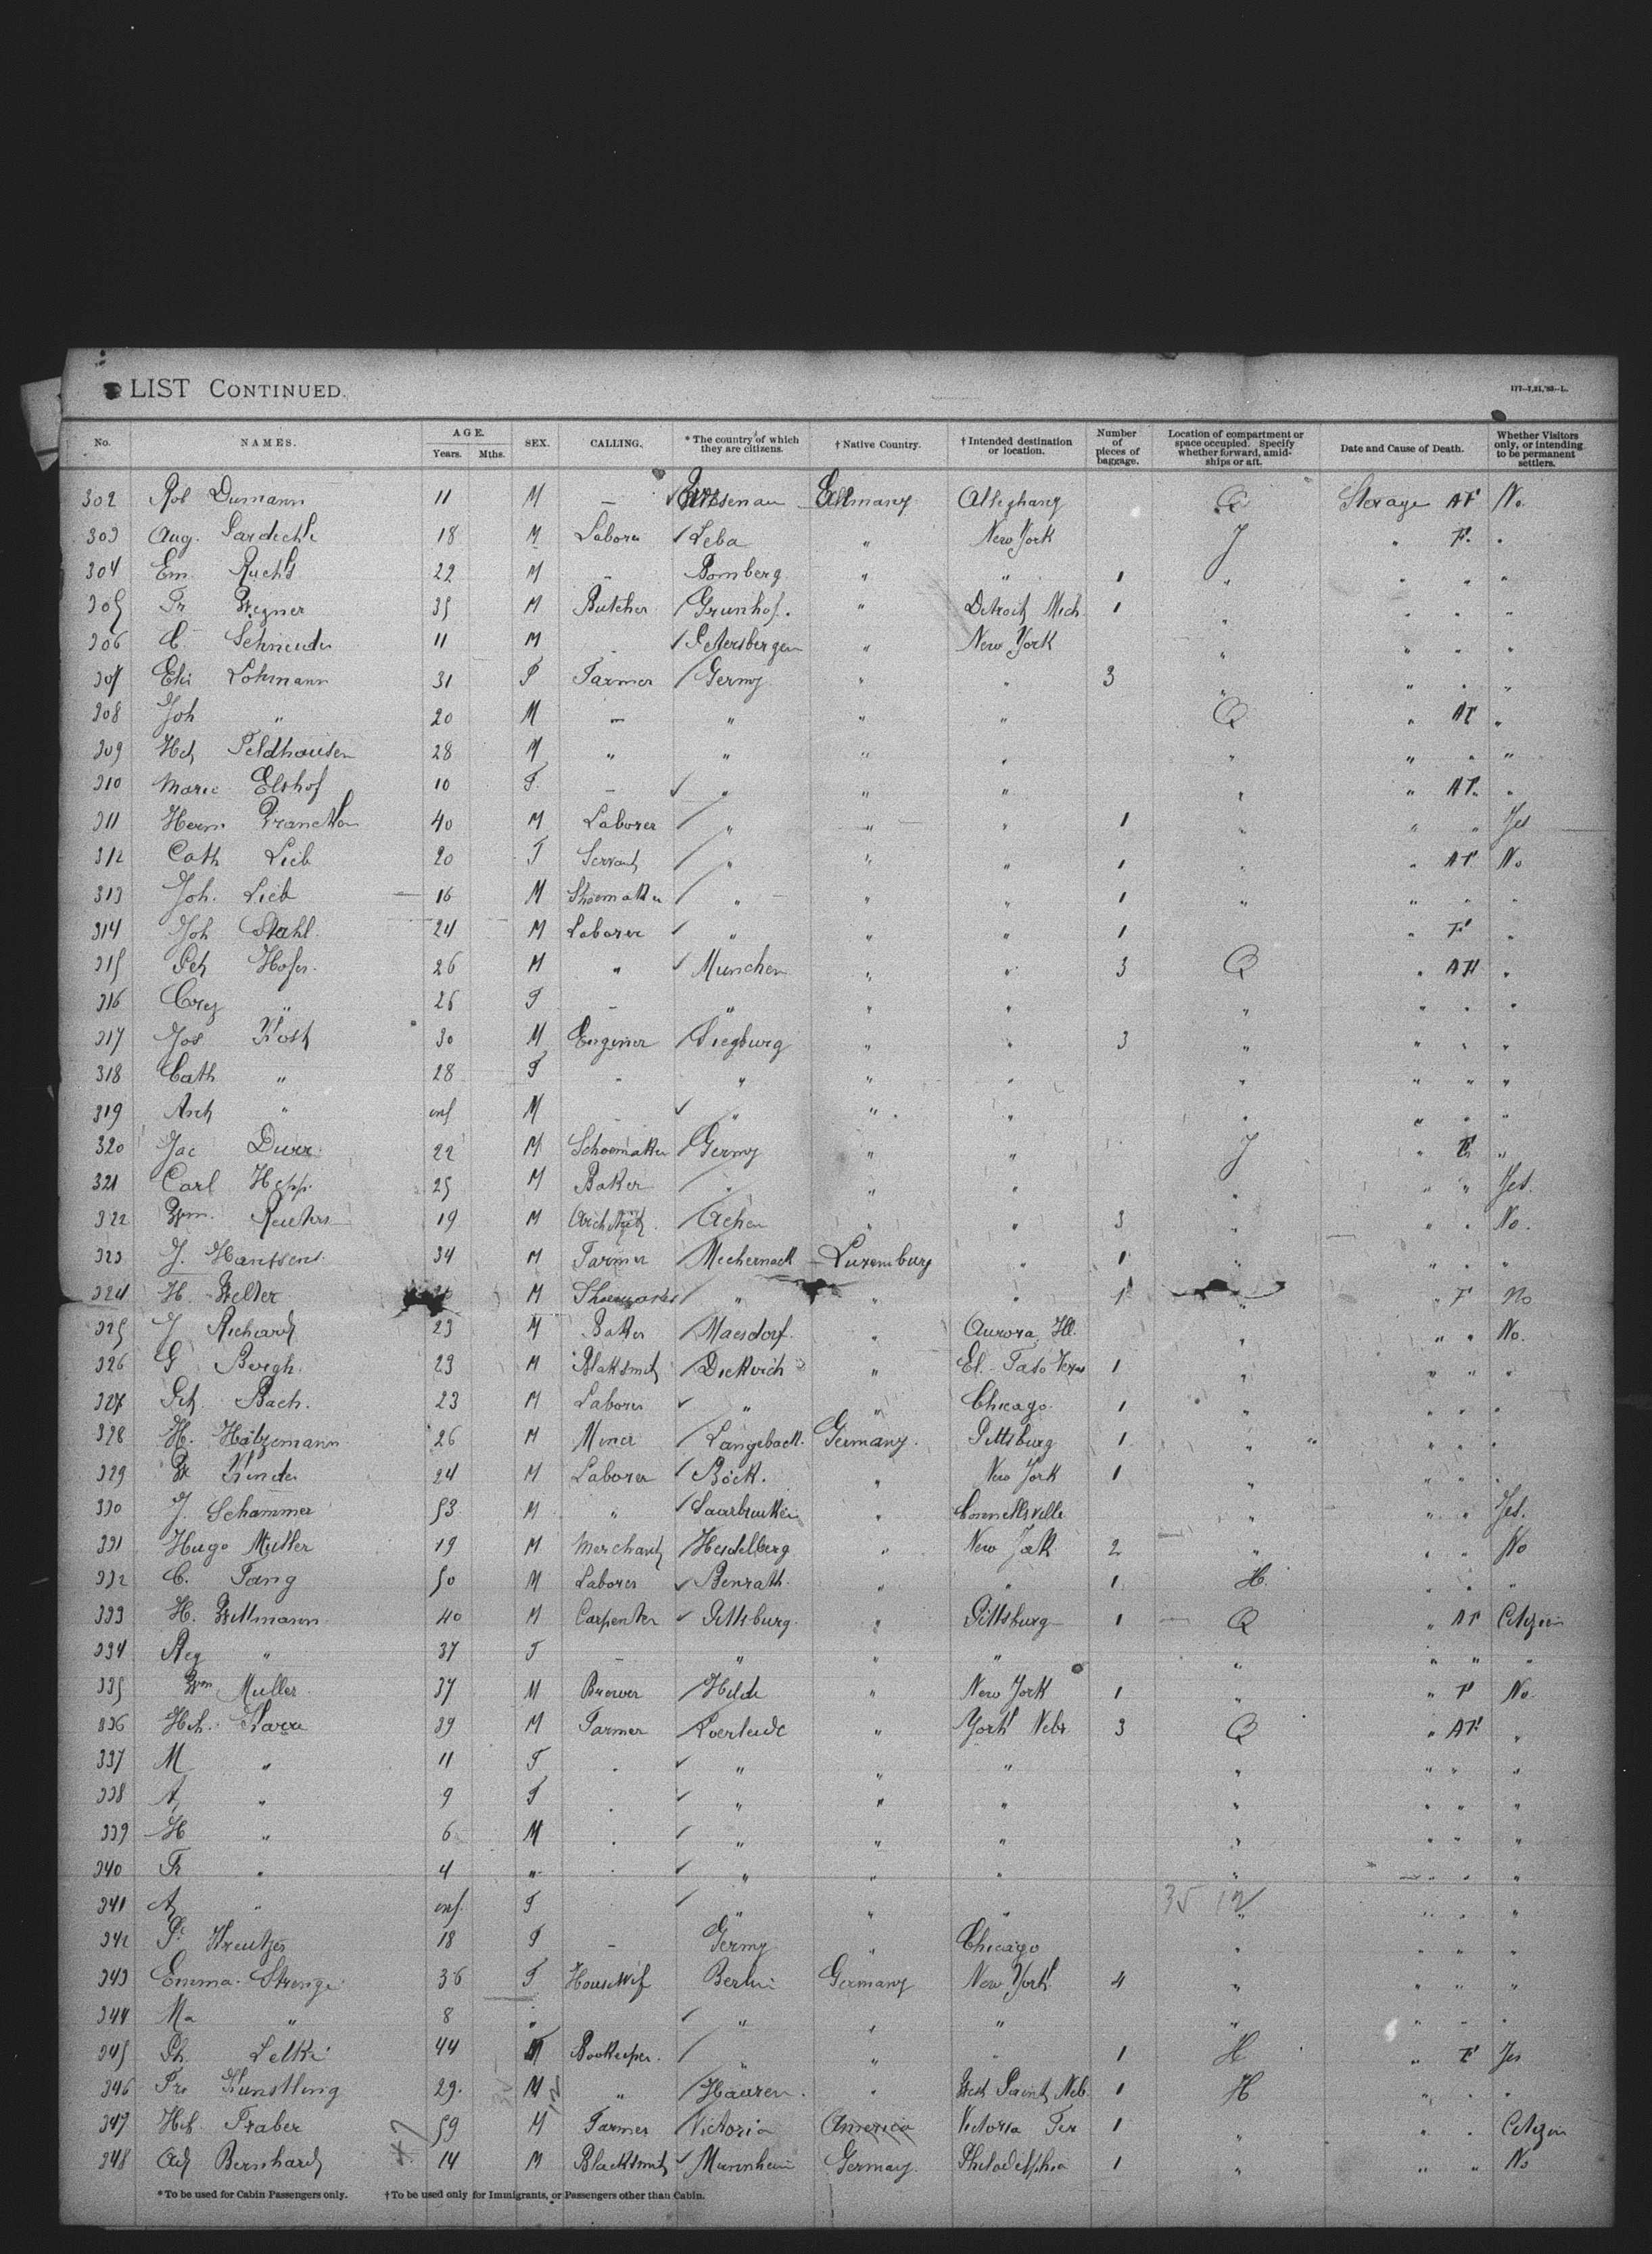 LIST CONTINUED.
177-7,21,'93-L.
No. NAMES. AGE. Years. Mths. SEX. CALLING. * The country of which they are citizens. † Native Country. † Intended destination or location. Number of pieces of baggage. Location of compartment or space occupied. Specify whether forward, amidships or aft. Date and Cause of Death. Whether Visitors only, or intending to be permanent settlers.
302 Rob Dumann 11 M — Germany Alleghany Q Sterage AF No
303 Aug. 18 M Labora Leba " New York J " F. "
304 Em. Ruchs 22 M " Bomberg " " 1 " " " "
305 Fr Wegner 35 M Butcher Grunhof. " Detroit, Mich. 1 " " " "
306 C. Schneider 11 M Petersbergen " New York " " " "
307 Eli Lohmann 31 F Farmer Germy " " 3 " " " "
308 Joh " 20 M — " " " Q " AF "
309 Hch Feldhausen 28 M " " " " " " " "
310 Marie Elshof 10 F — " " " " " AF "
311 Herm 40 M Laborer " " " 1 " " " Yes
312 Cath Lieb 20 F Servant " " " 1 " AF No
313 Joh. Lieb 16 M Shoemaker " " " 1 " " " "
314 Joh Stahl 24 M Laborer " " " 1 " F "
315 Pet Hofer 26 M " Munchen " " 3 Q " AF "
316 " 26 F — " " " " " " "
317 Jos Kost 30 M Enginer Siegburg " " 3 " " " "
318 Cath " 28 F - " " " " " " "
319 " inf M " " " " " " "
320 Jac Durr 22 M Schoemaker Germy " " J " F "
321 Carl Hepp. 25 M Baker " " " " " " Yes.
322 Wm. Reuters 19 M Architect Achen " " 3 " " " No.
323 J. Hanssens 34 M Farmer Mechernack Luxemburg " 1 " " " "
324 H. Welter M Shoemaker " " " 1 " " F No
325 J Richard 23 M Baker Maesdorf. " Aurora, Ill. " " " No.
326 G Bergh. 23 M Blaksmit Diekirch " El Paso Texas 1 " " " "
327 Pet. Bach. 23 M Laborer " " Chicago. 1 " " " "
328 H. Hatzemann 26 M Miner Langeback. Germany. Pittsburg 1 " " " "
329 W Kinder 24 M Laborer Böck. " New York 1 " " " "
330 J. Schammer 53 M " Saarbrucken " Connellsville " " " Yes.
331 Hugo Muller 19 M Merchant Heidelberg " New York 2 " " " No
332 C. Fang 50 M Laborer Benrath. " " 1 H. " " "
333 H. Wittmann 40 M Carpenter Pittsburg. " Pittsburg 1 Q " AF Citizen
334 Reg " 37 F — " " " " " " "
335 Wm Muller 37 M Brewer Hilde " New York 1 " " F No.
336 Hch. 39 M Farmer " York Nebr 3 Q " AF "
337 M " 11 F . " " " " " " "
338 A " 9 F . " " " " " " "
339 H " 6 M . " " " " " " "
340 Fr " 4 " . " " " " " " "
341 A " inf. F " " " 35 12 " " " "
342 P. Kreutzer 18 F — Germy " Chicago " " " "
343 Emma Strenge 36 F Housewif Berlin Germany New York 4 " " " "
344 Ma " 8 " " " " " " " "
345 Ph. Lelki 44 M Bookeeper. " " " 1 H " F Yes
346 Fr. Kunstling 29. M " Haaren. " West Point, Neb. 1 H " " "
347 Hch. Fraber 59 M Farmer Victoria America Victoria Ter 1 " " " Citizen
348 Ad Bernhard 14 M Blacksmit Mannheim Germany. Philadelphia 1 " " " No
*To be used for Cabin Passengers only. †To be used only for Immigrants, or Passengers other than Cabin.